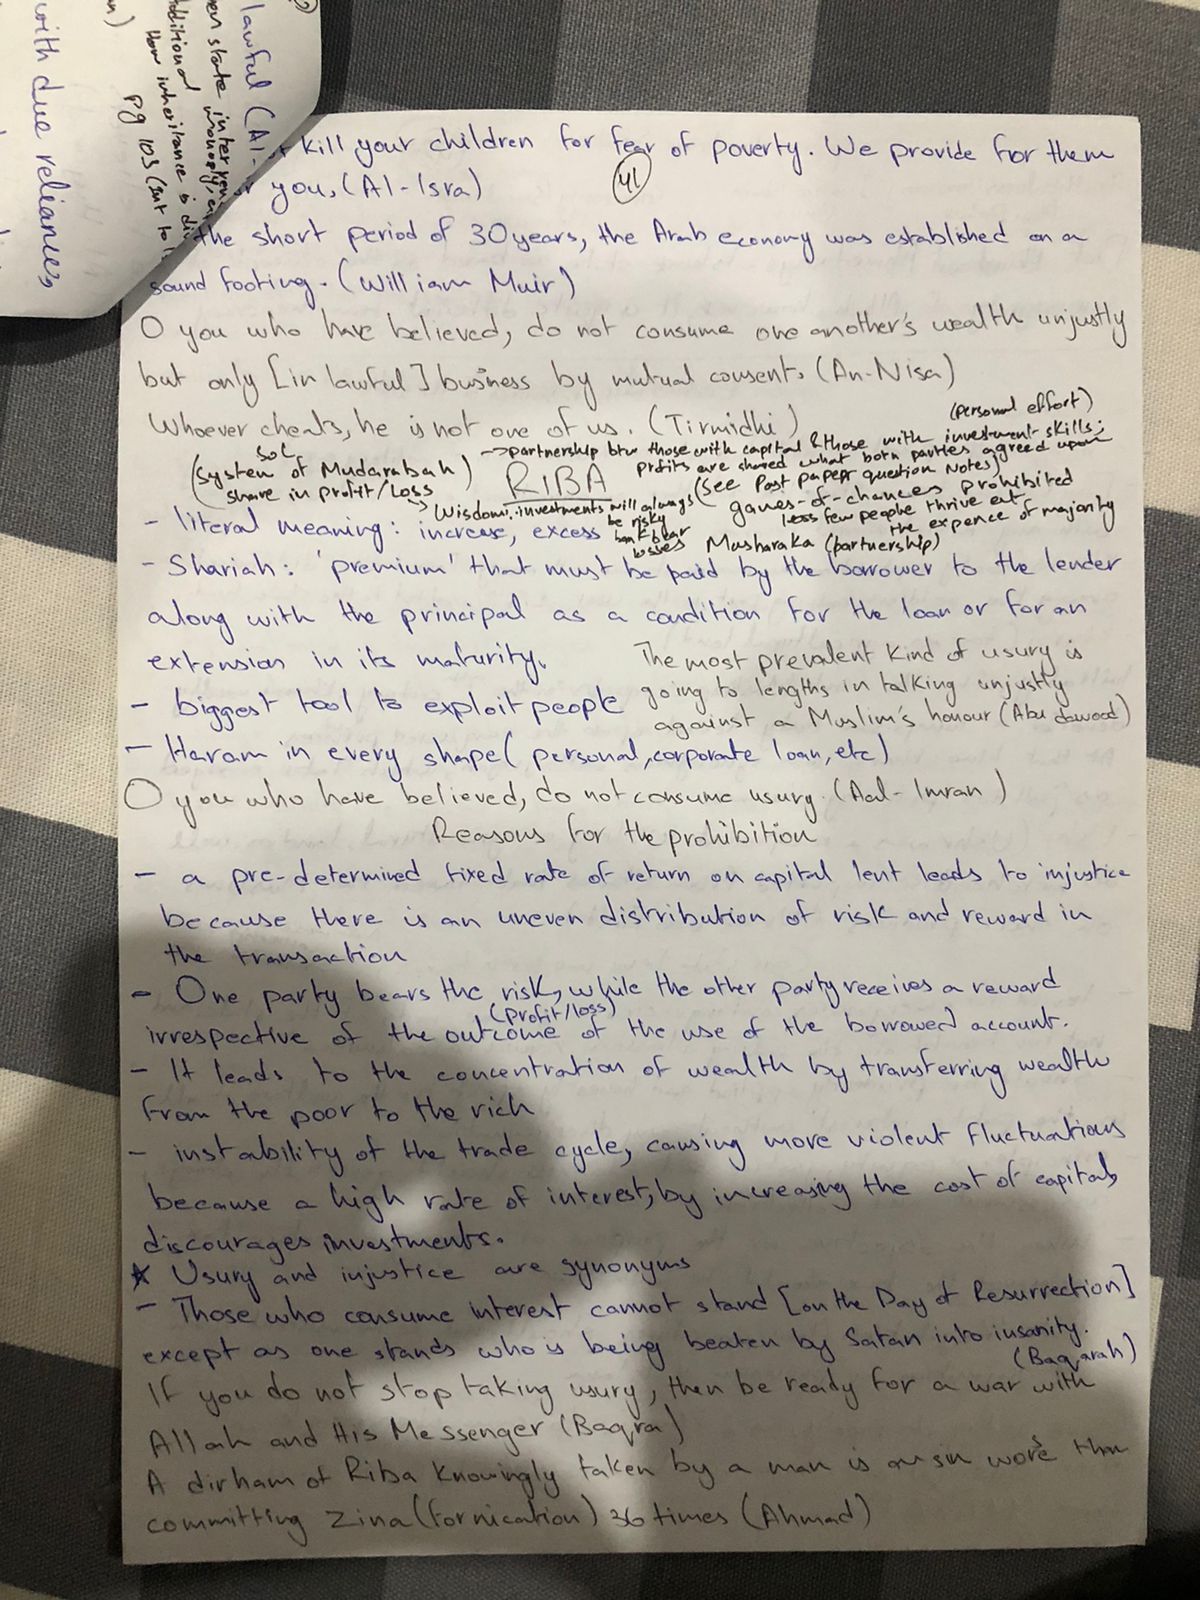 kill your children for fear of poverty. We provide for them
you, (Al-Isra)
41
the short period of 30 years, the Arab economy was established on a
sound footing. (William Muir)
O you who have believed, do not consume one another's wealth unjustly
but only [in lawful] business by mutual consent. (An-Nisa)
Whoever cheats, he is not one of us. (Tirmidhi)
(personal effort)
→ partnership btw those with capital & those with investment skills;
profits are shared what both parties agreed upon
(see Past paper question Notes)
sol
(System of Mudarabah)
(share in profit/loss
RIBA
→ Wisdom: investments will always be risky
bank bear losses
games-of-chances prohibited
less few people thrive at
the expence of majority
Musharaka (partnership)
- literal meaning: increase, excess
- Shariah: 'premium' that must be paid by the borrower to the lender
along with the principal as a condition for the loan or for an
extension in its maturity.
- biggest tool to exploit people
The most prevalent kind of usury is
going to lengths in talking unjustly
against a Muslim's honour (Abu dawood)
- Haram in every shape (personal, corporate loan, etc)
O you who have believed, do not consume usury. (Aal-Imran)
Reasons for the prohibition
- a pre-determined fixed rate of return on capital lent leads to injustice
because there is an uneven distribution of risk and reward in
the transaction
- One party bears the risk, while the other party receives a reward
(profit/loss)
irrespective of the outcome of the use of the borrowed account.
- It leads to the concentration of wealth by transferring wealth
from the poor to the rich
- instability of the trade cycle, causing more violent fluctuations
because a high rate of interest, by increasing the cost of capital,
discourages investments.
* Usury and injustice are synonyms
- Those who consume interest cannot stand [on the Day of Resurrection]
except as one stands who is being beaten by Satan into insanity.
(Baqarah)
If you do not stop taking usury, then be ready for a war with
Allah and His Messenger (Baqra)
A dirham of Riba knowingly taken by a man is a sin worse than
committing Zina (fornication) 36 times (Ahmad)
lawful (Al-
state
additional
How inheritance is
pg 103
with due reliance